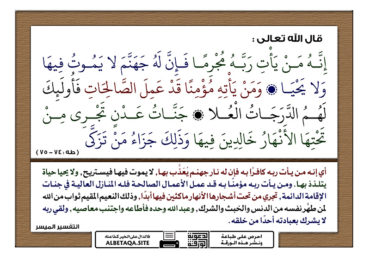 قال الله تعالى :
إِنَّهُ مَن يَأْتِ رَبَّهُ مُجْرِمًا فَإِنَّ لَهُ جَهَنَّمَ لَا يَمُوتُ فِيهَا
وَلَا يَحْيَىٰ ۞ وَمَن يَأْتِهِ مُؤْمِنًا قَدْ عَمِلَ الصَّالِحَاتِ فَأُولَٰئِكَ
لَهُمُ الدَّرَجَاتُ الْعُلَا ۞ جَنَّاتُ عَدْنٍ تَجْرِي مِن
تَحْتِهَا الْأَنْهَارُ خَالِدِينَ فِيهَا وَذَٰلِكَ جَزَاءُ مَن تَزَكَّىٰ
( طه : ٧٤ - ٧٥ )
أي إنه من يأت ربه كافرًا به فإن له نار جهنم يُعَذَّب بها، لا يموت فيها فيستريح، ولا يحيا حياة
يتلذذ بها. ومن يأت ربه مؤمنًا به قد عمل الأعمال الصالحة فله المنازل العالية في جنات
الإقامة الدائمة، تجري من تحت أشجارها الأنهار ماكثين فيها أبدًا، وذلك النعيم المقيم ثواب من الله
لمن طهَّر نفسه من الدنس والخبث والشرك، وعبد الله وحده فأطاعه واجتنب معاصيه، ولقي ربه
لا يشرك بعبادته أحدًا من خلقه.
التفسير الميسر
احرص على طباعة
ونشر هذه الورقة
فالدال على الخير كفاعله
ALBETAQA.SITE